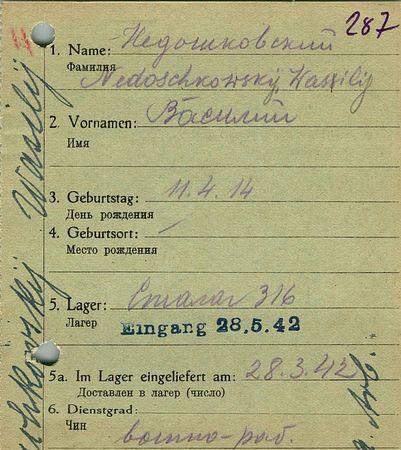 287
1. Name: Недошковский
Фамилия
Nedoschkowskij Wassilij
2. Vornamen: Василий
Имя
3. Geburtstag: 11.4.14
День рождения
4. Geburtsort: —
Место рождения
5. Lager: Сталаг 316
Лагер
Eingang 28.5.42
5a. Im Lager eingeliefert am: 28.3.42
Доставлен в лагер (число)
6. Dienstgrad:
Чин
военно-раб.
Wassilij